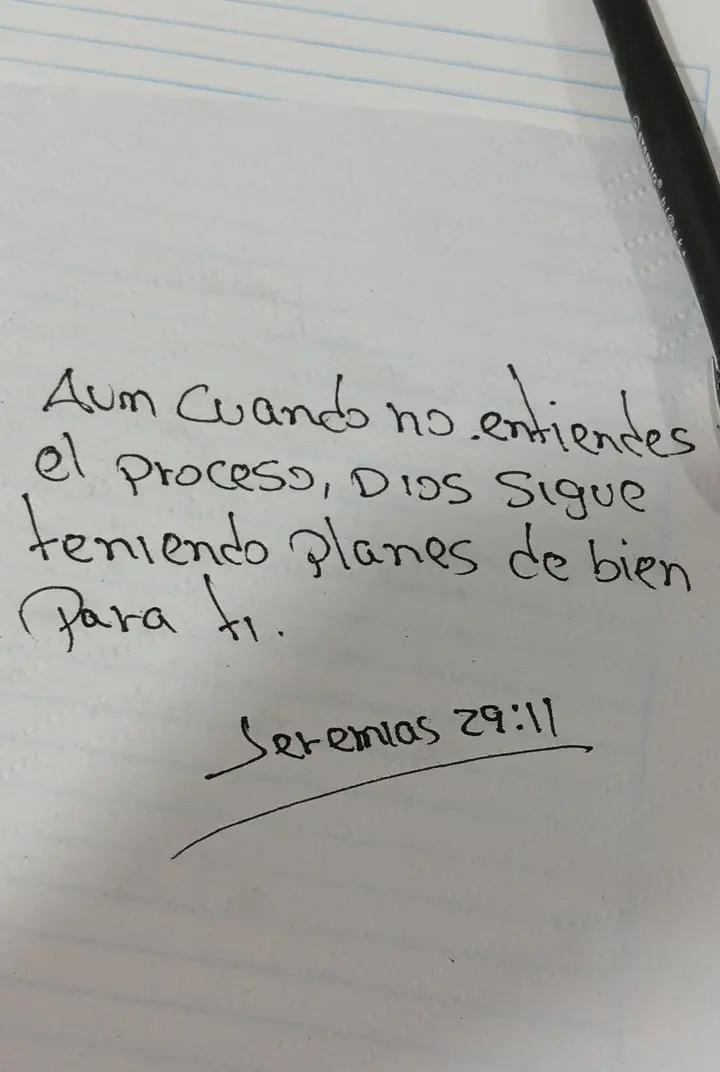 Aum cuando no entiendes
el proceso, Dios sigue
teniendo planes de bien
Para ti.
Jeremias 29:11